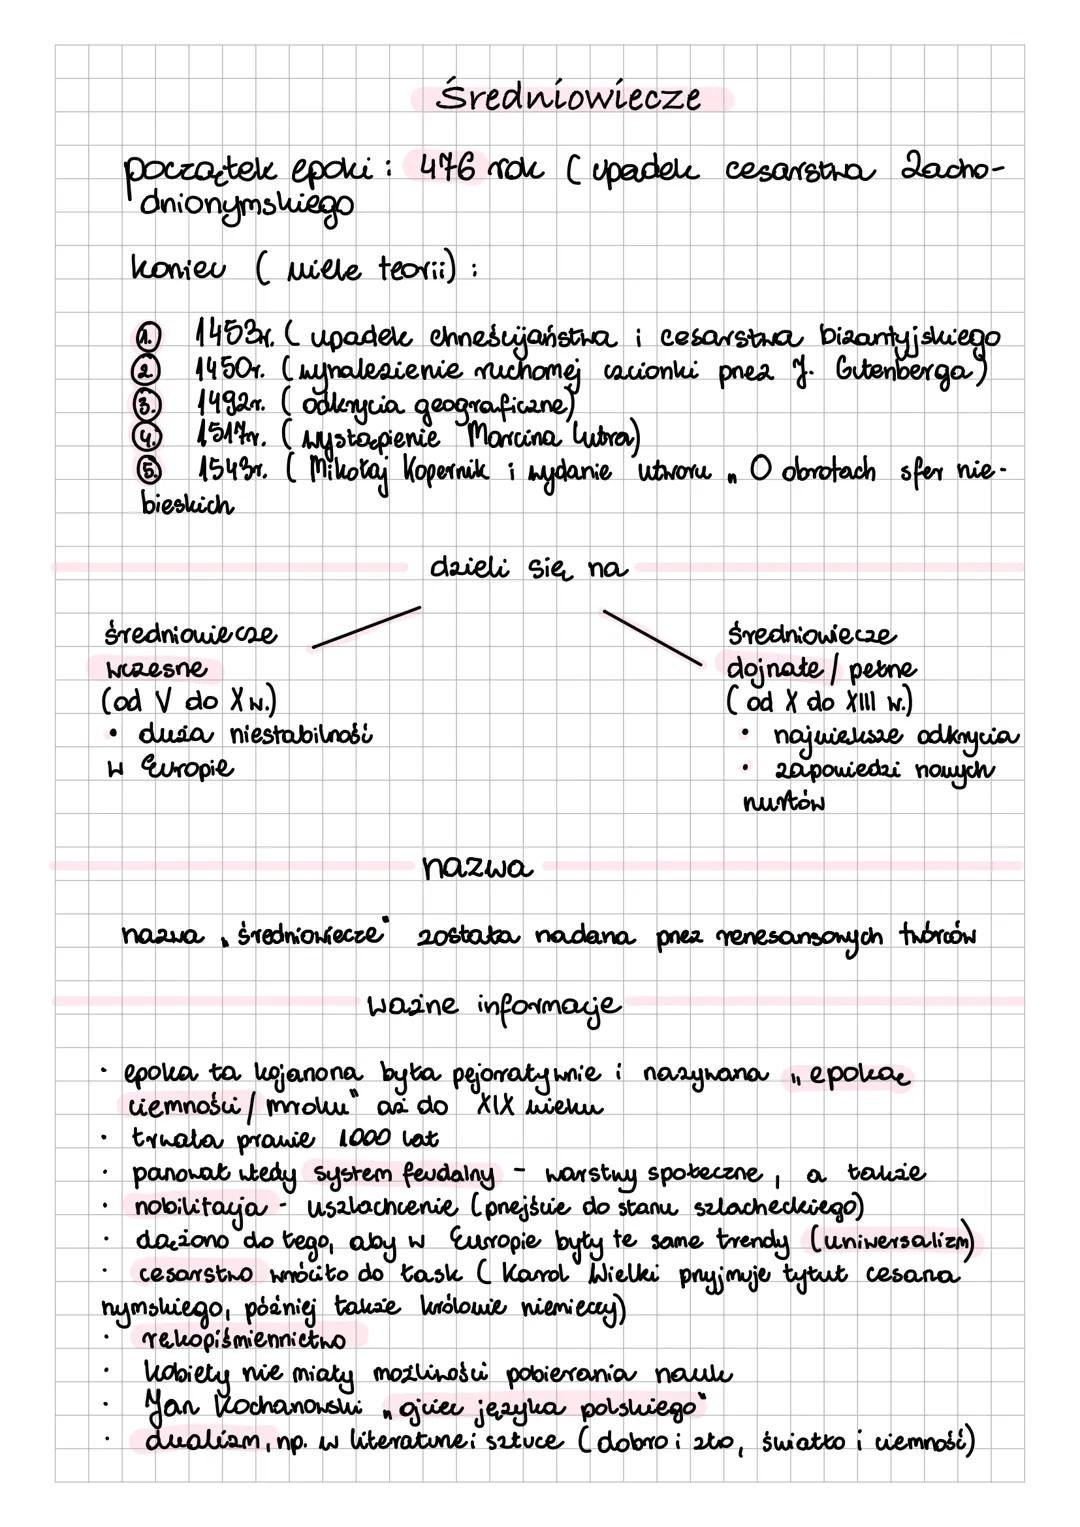 Średniowiecze
początek epoki : 476 rok ( upadek cesarstwa zacho-
dniorzymskiego
koniec ( wiele teorii) :
1. 1453r. ( upadek chrześcijaństwa i cesarstwa bizantyjskiego
2. 1450r. (wynalezienie ruchomej czcionki przez J. Gutenberga)
3. 1492r. ( odkrycia geograficzne)
4. 1517r. ( wystąpienie Marcina Lutra)
5. 1543r. ( Mikołaj Kopernik i wydanie utworu „ O obrotach sfer nie-
bieskich
dzieli się na
średniowiecze
wczesne
(od V do X w.)
• duża niestabilność
w Europie
średniowiecze
dojrzałe / pełne
( od X do XIII w.)
• największe odkrycia
• zapowiedzi nowych
nurtów
nazwa
nazwa „średniowiecze" została nadana przez renesansowych twórców
ważne informacje
• epoka ta kojarzona była pejoratywnie i nazywana „ epoką
ciemności / mroku" aż do XIX wieku
• trwała prawie 1000 lat
• panował wtedy system feudalny - warstwy społeczne , a także
• nobilitacja - uszlachcenie (przejście do stanu szlacheckiego)
• dążono do tego, aby w Europie były te same trendy (uniwersalizm)
• cesarstwo wróciło do łask ( Karol Wielki przyjmuje tytuł cesarza
rzymskiego, później także królowie niemieccy)
• rękopiśmiennictwo
• kobiety nie miały możliwości pobierania nauk
• Jan Kochanowski „ ojciec języka polskiego"
• dualizm, np. w literaturze i sztuce ( dobro i zło, światło i ciemność)